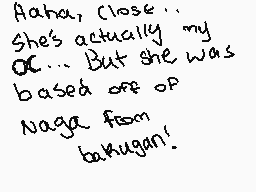 Haha, close..
She's actually my
OC... But she was
based off of
Naga from
bakugan!